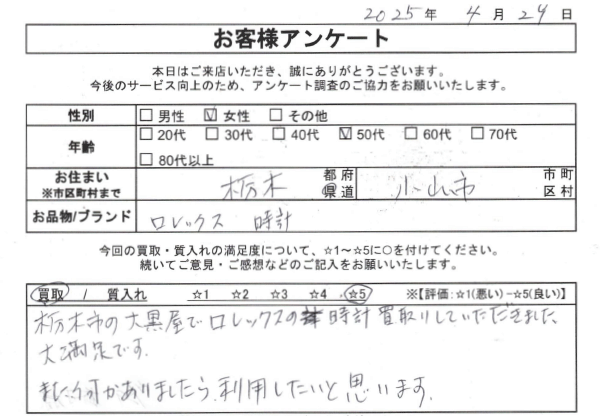 2025年 4月 29日
お客様アンケート
本日はご来店いただき、誠にありがとうございます。
今後のサービス向上のため、アンケート調査のご協力をお願いいたします。
性別 □男性 ☑女性 □その他
年齢 □20代 □30代 □40代 ☑50代 □60代 □70代
□80代以上
お住まい ※市区町村まで 栃木 都府県道 小山市 市町区村
お品物/ブランド ロレックス 時計
今回の買取・質入れの満足度について、☆1～☆5に○を付けてください。
続いてご意見・ご感想などのご記入をお願いいたします。
買取 / 質入れ ☆1 ☆2 ☆3 ☆4 ☆5 ※【評価:☆1(悪い)-☆5(良い)】
栃木市の大黒屋でロレックスの時計買取りしていただきました、
大満足です.
また何かありましたら、利用したいと思います.